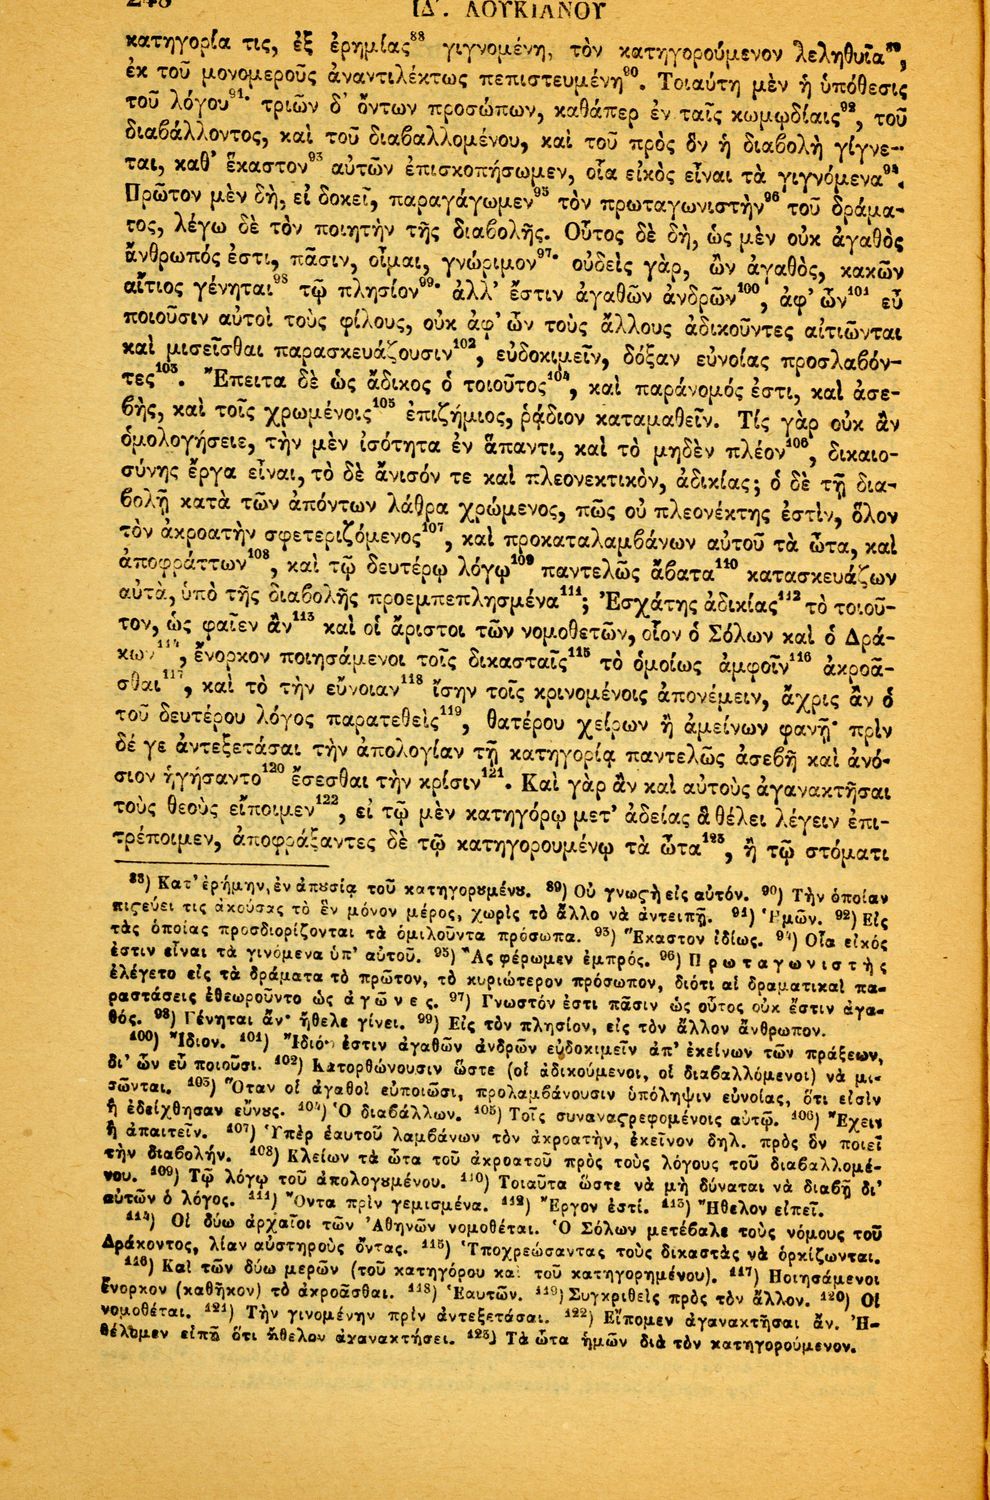 248
ΙΔ'. ΛΟΥΚΙΑΝΟΥ
κατηγορία τις, ἐξ ἐρημίας⁸⁸ γιγνομένη, τὸν κατηγορούμενον λεληθυῖα⁸⁹,
ἐκ τοῦ μονομεροῦς ἀναντιλέκτως πεπιστευμένη⁹⁰. Τοιαύτη μὲν ἡ ὑπόθεσις
τοῦ λόγου⁹¹· τριῶν δ' ὄντων προσώπων, καθάπερ ἐν ταῖς κωμῳδίαις⁹², τοῦ
διαβάλλοντος, καὶ τοῦ διαβαλλομένου, καὶ τοῦ πρὸς ὃν ἡ διαβολὴ γίγνε-
ται, καθ' ἕκαστον⁹³ αὐτῶν ἐπισκοπήσωμεν, οἷα εἰκὸς εἶναι τὰ γιγνόμενα⁹⁴.
Πρῶτον μὲν δὴ, εἰ δοκεῖ, παραγάγωμεν⁹⁵ τὸν πρωταγωνιστὴν⁹⁶ τοῦ δράμα-
τος, λέγω δὲ τὸν ποιητὴν τῆς διαβολῆς. Οὗτος δὲ δὴ, ὡς μὲν οὐκ ἀγαθὸς
ἄνθρωπός ἐστι, πᾶσιν, οἶμαι, γνώριμον⁹⁷· οὐδεὶς γὰρ, ὢν ἀγαθὸς, κακῶν
αἴτιος γένηται⁹⁸ τῷ πλησίον⁹⁹· ἀλλ' ἔστιν ἀγαθῶν ἀνδρῶν¹⁰⁰, ἀφ' ὧν¹⁰¹ εὖ
ποιοῦσιν αὐτοὶ τοὺς φίλους, οὐκ ἀφ' ὧν τοὺς ἄλλους ἀδικοῦντες αἰτιῶνται
καὶ μισεῖσθαι παρασκευάζουσιν¹⁰², εὐδοκιμεῖν, δόξαν εὐνοίας προσλαβόν-
τες¹⁰³. Ἔπειτα δὲ ὡς ἄδικος ὁ τοιοῦτος¹⁰⁴, καὶ παράνομός ἐστι, καὶ ἀσε-
βὴς, καὶ τοῖς χρωμένοις¹⁰⁵ ἐπιζήμιος, ῥᾴδιον καταμαθεῖν. Τίς γὰρ οὐκ ἂν
ὁμολογήσειε, τὴν μὲν ἰσότητα ἐν ἅπαντι, καὶ τὸ μηδὲν πλέον¹⁰⁶, δικαιο-
σύνης ἔργα εἶναι, τὸ δὲ ἄνισόν τε καὶ πλεονεκτικὸν, ἀδικίας; ὁ δὲ τῇ δια-
βολῇ κατὰ τῶν ἀπόντων λάθρα χρώμενος, πῶς οὐ πλεονέκτης ἐστὶν, ὅλον
τὸν ἀκροατὴν σφετεριζόμενος¹⁰⁷, καὶ προκαταλαμβάνων αὐτοῦ τὰ ὦτα, καὶ
ἀποφράττων¹⁰⁸, καὶ τῷ δευτέρῳ λόγῳ¹⁰⁹ παντελῶς ἄβατα¹¹⁰ κατασκευάζων
αὐτὰ, ὑπὸ τῆς διαβολῆς προεμπεπλησμένα¹¹¹; Ἐσχάτης ἀδικίας¹¹² τὸ τοιοῦ-
τον, ὡς φαῖεν ἂν¹¹³ καὶ οἱ ἄριστοι τῶν νομοθετῶν, οἷον ὁ Σόλων καὶ ὁ Δρά-
κων¹¹⁴, ἔνορκον ποιησάμενοι τοῖς δικασταῖς¹¹⁵ τὸ ὁμοίως ἀμφοῖν¹¹⁶ ἀκροᾶ-
σθαι¹¹⁷, καὶ τὸ τὴν εὔνοιαν¹¹⁸ ἴσην τοῖς κρινομένοις ἀπονέμειν, ἄχρις ἂν ὁ
τοῦ δευτέρου λόγος παρατεθεὶς¹¹⁹, θατέρου χείρων ἢ ἀμείνων φανῇ· πρὶν
δέ γε ἀντεξετάσαι τὴν ἀπολογίαν τῇ κατηγορίᾳ παντελῶς ἀσεβῆ καὶ ἀνό-
σιον ἡγήσαντο¹²⁰ ἔσεσθαι τὴν κρίσιν¹²¹. Καὶ γὰρ ἂν καὶ αὐτοὺς ἀγανακτῆσαι
τοὺς θεοὺς εἴποιμεν¹²², εἰ τῷ μὲν κατηγόρῳ μετ' ἀδείας ἃ θέλει λέγειν ἐπι-
τρέποιμεν, ἀποφράξαντες δὲ τῷ κατηγορουμένῳ τὰ ὦτα¹²³, ἢ τῷ στόματι
⁸⁸) Κατ' ἐρήμην, ἐν ἀπουσίᾳ τοῦ κατηγορουμένου. ⁸⁹) Οὐ γνωστὴ εἰς αὐτόν. ⁹⁰) Τὴν ὁποίαν
πιστεύει τις ἀκούσας τὸ ἓν μόνον μέρος, χωρὶς τὸ ἄλλο νὰ ἀντειπῇ. ⁹¹) Ἡμῶν. ⁹²) Εἰς
τὰς ὁποίας προσδιορίζονται τὰ ὁμιλοῦντα πρόσωπα. ⁹³) Ἕκαστον ἰδίως. ⁹⁴) Οἷα εἰκός
ἐστιν εἶναι τὰ γινόμενα ὑπ' αὐτοῦ. ⁹⁵) Ἂς φέρωμεν ἐμπρός. ⁹⁶) Πρωταγωνιστὴς
ἐλέγετο εἰς τὰ δράματα τὸ πρῶτον, τὸ κυριώτερον πρόσωπον, διότι αἱ δραματικαὶ πα-
ραστάσεις ἐθεωροῦντο ὡς ἀγῶνες. ⁹⁷) Γνωστόν ἐστι πᾶσιν ὡς οὗτος οὐκ ἔστιν ἀγα-
θός. ⁹⁸) Γένηται ἄν· ἤθελε γίνει. ⁹⁹) Εἰς τὸν πλησίον, εἰς τὸν ἄλλον ἄνθρωπον.
¹⁰⁰) Ἴδιον. ¹⁰¹) Ἴδιόν ἐστιν ἀγαθῶν ἀνδρῶν εὐδοκιμεῖν ἀπ' ἐκείνων τῶν πράξεων,
δι' ὧν εὖ ποιοῦσι. ¹⁰²) Κατορθώνουσιν ὥστε (οἱ ἀδικούμενοι, οἱ διαβαλλόμενοι) νὰ μι-
σῶνται. ¹⁰³) Ὅταν οἱ ἀγαθοὶ εὐποιῶσι, προλαμβάνουσιν ὑπόληψιν εὐνοίας, ὅτι εἰσὶν
ἢ ἐδείχθησαν εὖνους. ¹⁰⁴) Ὁ διαβάλλων. ¹⁰⁵) Τοῖς συναναστρεφομένοις αὐτῷ. ¹⁰⁶) Ἔχειν
ἢ ἀπαιτεῖν. ¹⁰⁷) Ὑπὲρ ἑαυτοῦ λαμβάνων τὸν ἀκροατὴν, ἐκεῖνον δηλ. πρὸς ὃν ποιεῖ
τὴν διαβολήν. ¹⁰⁸) Κλείων τὰ ὦτα τοῦ ἀκροατοῦ πρὸς τοὺς λόγους τοῦ διαβαλλομέ-
νου. ¹⁰⁹) Τῷ λόγῳ τοῦ ἀπολογουμένου. ¹¹⁰) Τοιαῦτα ὥστε νὰ μὴ δύναται νὰ διαβῇ δι'
αὐτῶν ὁ λόγος. ¹¹¹) Ὄντα πρὶν γεμισμένα. ¹¹²) Ἔργον ἐστί. ¹¹³) Ἤθελον εἰπεῖ.
¹¹⁴) Οἱ δύω ἀρχαῖοι τῶν Ἀθηνῶν νομοθέται. Ὁ Σόλων μετέβαλε τοὺς νόμους τοῦ
Δράκοντος, λίαν αὐστηροὺς ὄντας. ¹¹⁵) Ὑποχρεώσαντας τοὺς δικαστὰς νὰ ὁρκίζωνται.
¹¹⁶) Καὶ τῶν δύω μερῶν (τοῦ κατηγόρου καὶ τοῦ κατηγορημένου). ¹¹⁷) Ποιησάμενοι
ἔνορκον (καθῆκον) τὸ ἀκροᾶσθαι. ¹¹⁸) Ἑαυτῶν. ¹¹⁹) Συγκριθεὶς πρὸς τὸν ἄλλον. ¹²⁰) Οἱ
νομοθέται. ¹²¹) Τὴν γινομένην πρὶν ἀντεξετάσαι. ¹²²) Εἴπομεν ἀγανακτῆσαι ἄν. Ἠ-
θέλομεν εἰπῇ ὅτι ἤθελον ἀγανακτήσει. ¹²³) Τὰ ὦτα ἡμῶν διὰ τὸν κατηγορούμενον.